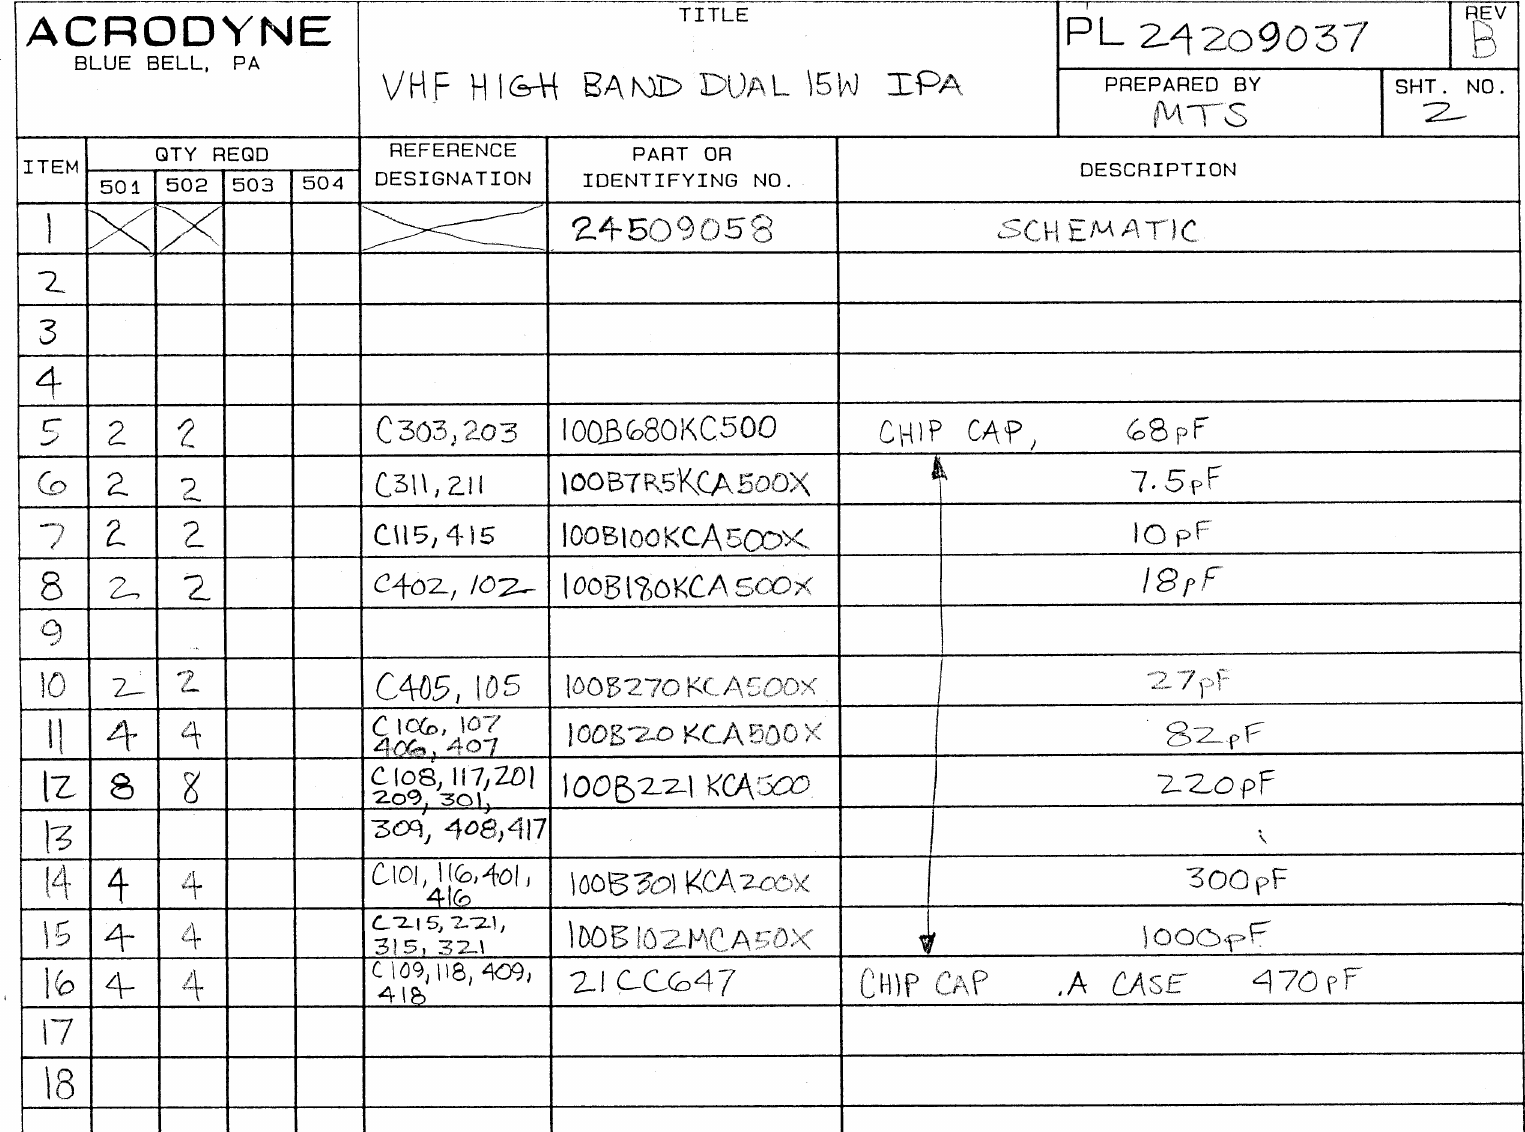 ACRODYNE
BLUE BELL, PA
TITLE
VHF HIGH BAND DUAL 15W IPA
PL 24209037
REV
B
PREPARED BY
MTS
SHT. NO.
2
ITEM
QTY REQD
501 502 503 504
REFERENCE
DESIGNATION
PART OR
IDENTIFYING NO.
DESCRIPTION
1 24509058 SCHEMATIC
2
3
4
5 2 2 C303,203 100B680KC500 CHIP CAP, 68pF
6 2 2 C311,211 100B7R5KCA500X 7.5pF
7 2 2 C115,415 100B100KCA500X 10pF
8 2 2 C402,102 100B180KCA500X 18pF
9
10 2 2 C405,105 100B270KCA500X 27pF
11 4 4 C106,107 100B20KCA500X 82pF
406,407
12 8 8 C108,117,201 100B221KCA500 220pF
209,301,
13 309,408,417
14 4 4 C101,116,401, 100B301KCA200X 300pF
416
15 4 4 C215,221, 100B102MCA50X 1000pF
315,321
16 4 4 C109,118,409, 21CC647 CHIP CAP .A CASE 470pF
418
17
18